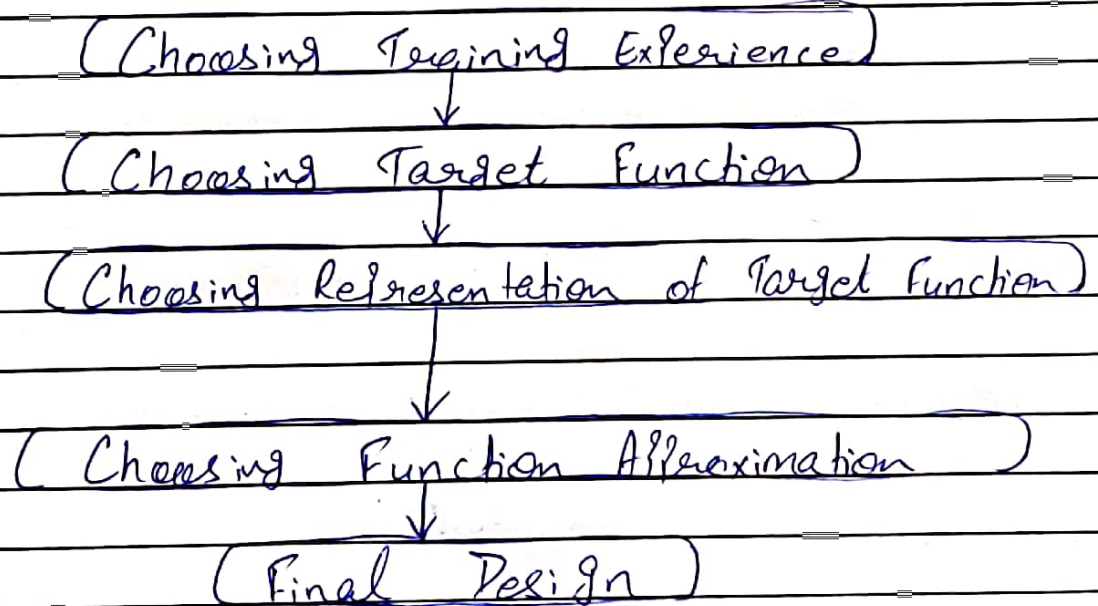 Choosing Training Experience
Choosing Target Function
Choosing Representation of Target Function
Choosing Function Approximation
Final Design